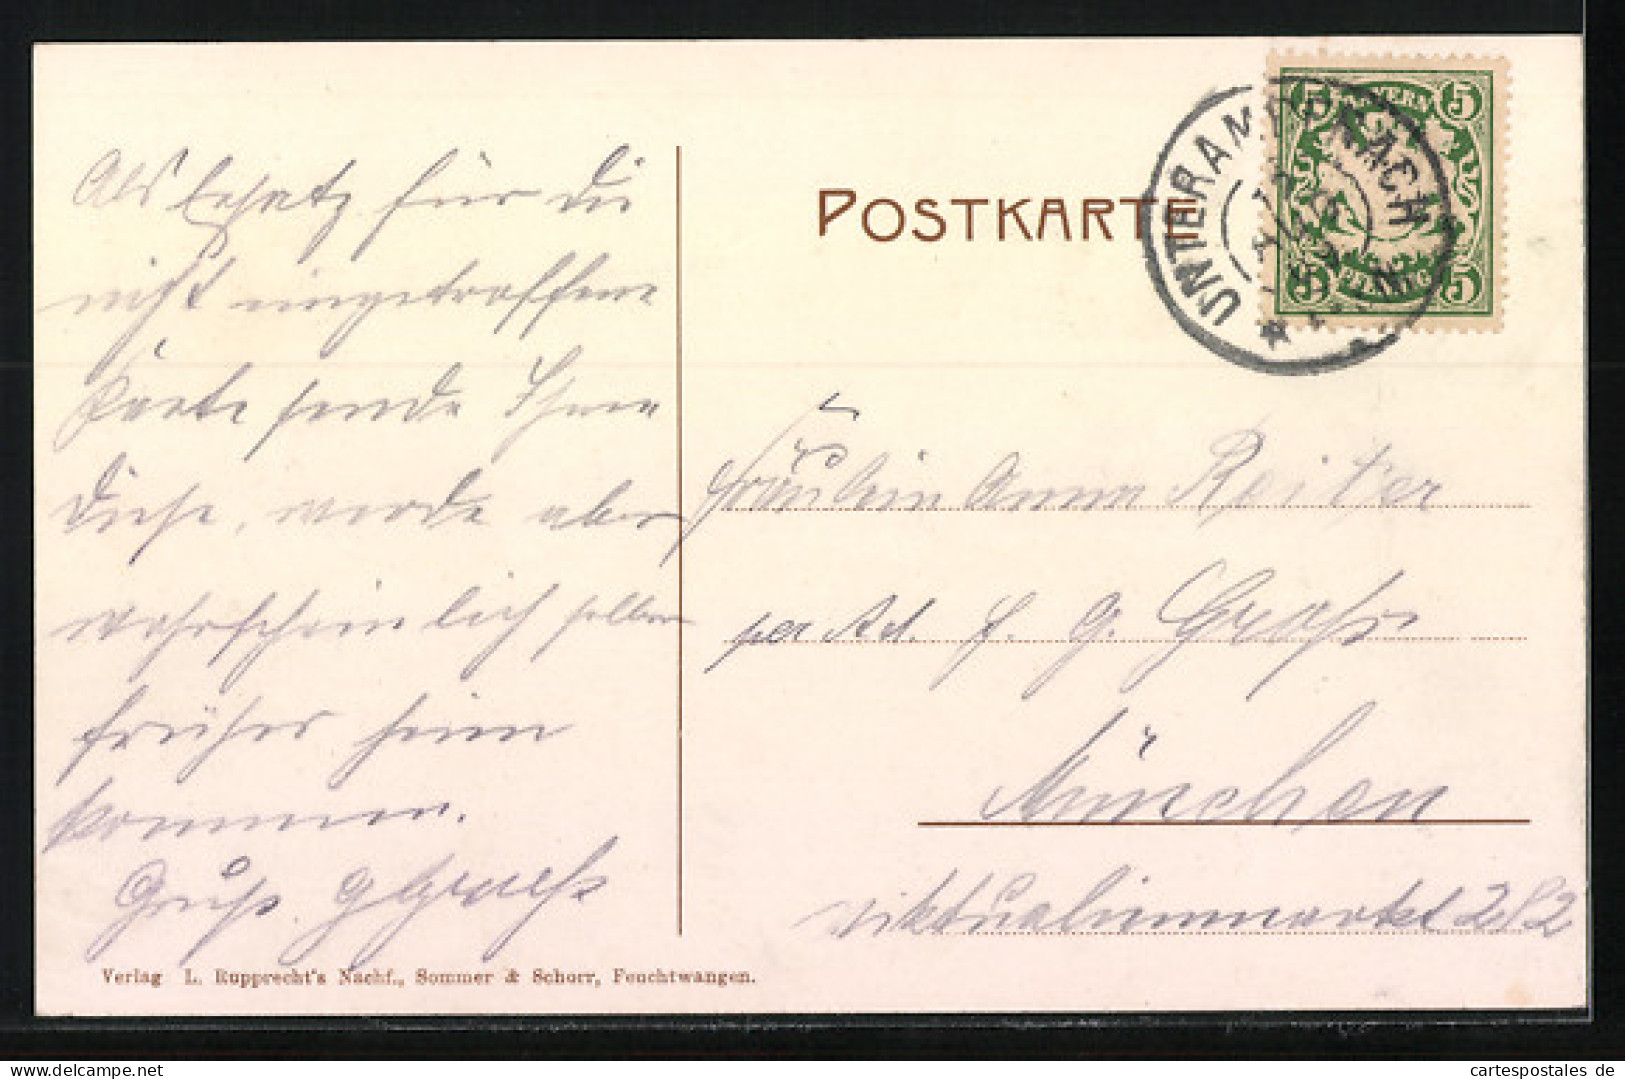 Als Ersatz für die
nicht eingetroffene
Karte sende Ihnen
diese, werde aber
wahrscheinlich selber
früher heim
kommen.
Gruß. G Graeß
Verlag L. Rupprecht's Nachf., Sommer & Schorr, Feuchtwangen.
POSTKARTE
UNTERAMMERGAU
BAYERN
5 5
5 PFENNIG 5
Fräulein Anna Reiter
per Ad. G.
München
Viktualienmarkt 2/2
cartespostales de
www.delcampe.net